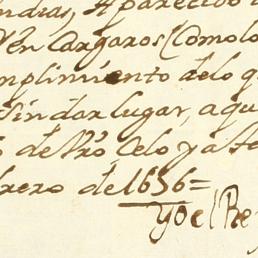 aparecido
en Cargaros (como lo
mplimiento de lo q
Sin dar lugar, a qu
de Vro Celo ya se
brero de 1656=
Yo el Rey